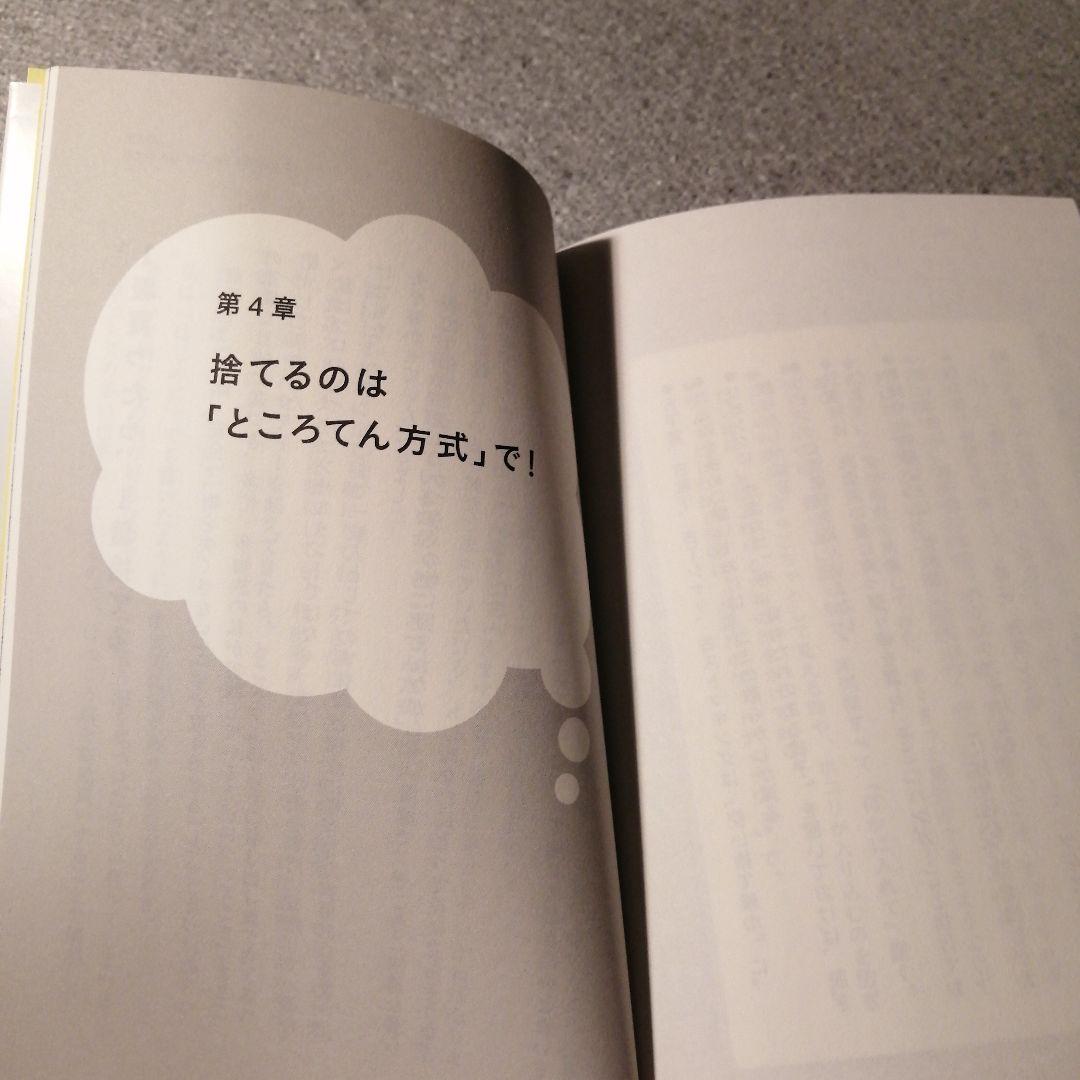 第4章
捨てるのは
「ところてん方式」で!